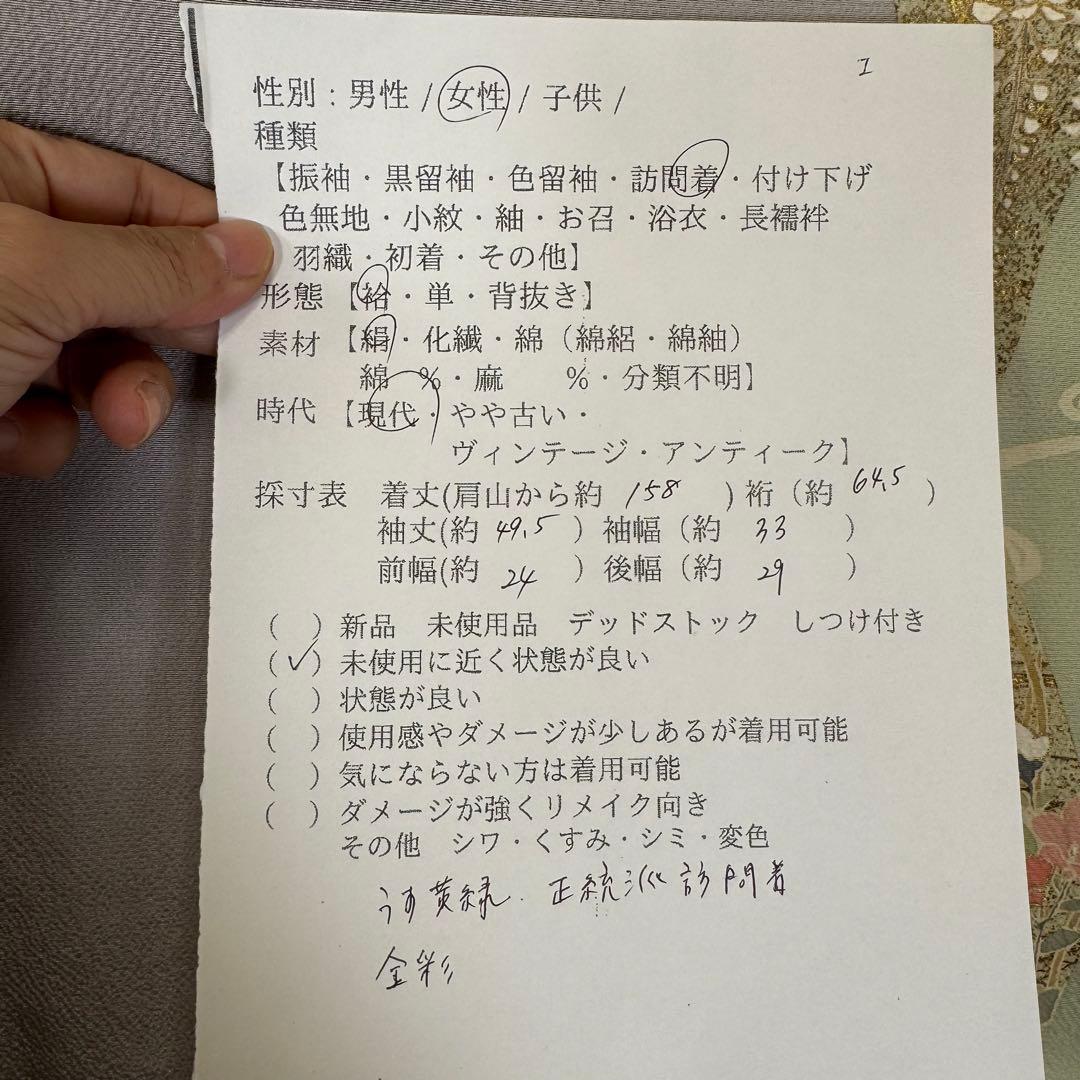 I
性別：男性 / 女性 / 子供 /
種類
【振袖・黒留袖・色留袖・訪問着・付け下げ
色無地・小紋・紬・お召・浴衣・長襦袢
羽織・初着・その他】
形態【袷・単・背抜き】
素材【絹・化繊・綿（綿絽・綿紬）
綿　％・麻　　％・分類不明】
時代【現代・やや古い・
ヴィンテージ・アンティーク】
採寸表　着丈(肩山から約 158 ) 裄（約 64.5 ）
袖丈(約 49.5 ）袖幅（約 33 ）
前幅(約 24 ）後幅（約 29 ）
（　）新品　未使用品　デッドストック　しつけ付き
（✓）未使用に近く状態が良い
（　）状態が良い
（　）使用感やダメージが少しあるが着用可能
（　）気にならない方は着用可能
（　）ダメージが強くリメイク向き
その他　シワ・くすみ・シミ・変色
うす黄緑. 正統派訪問着
金彩